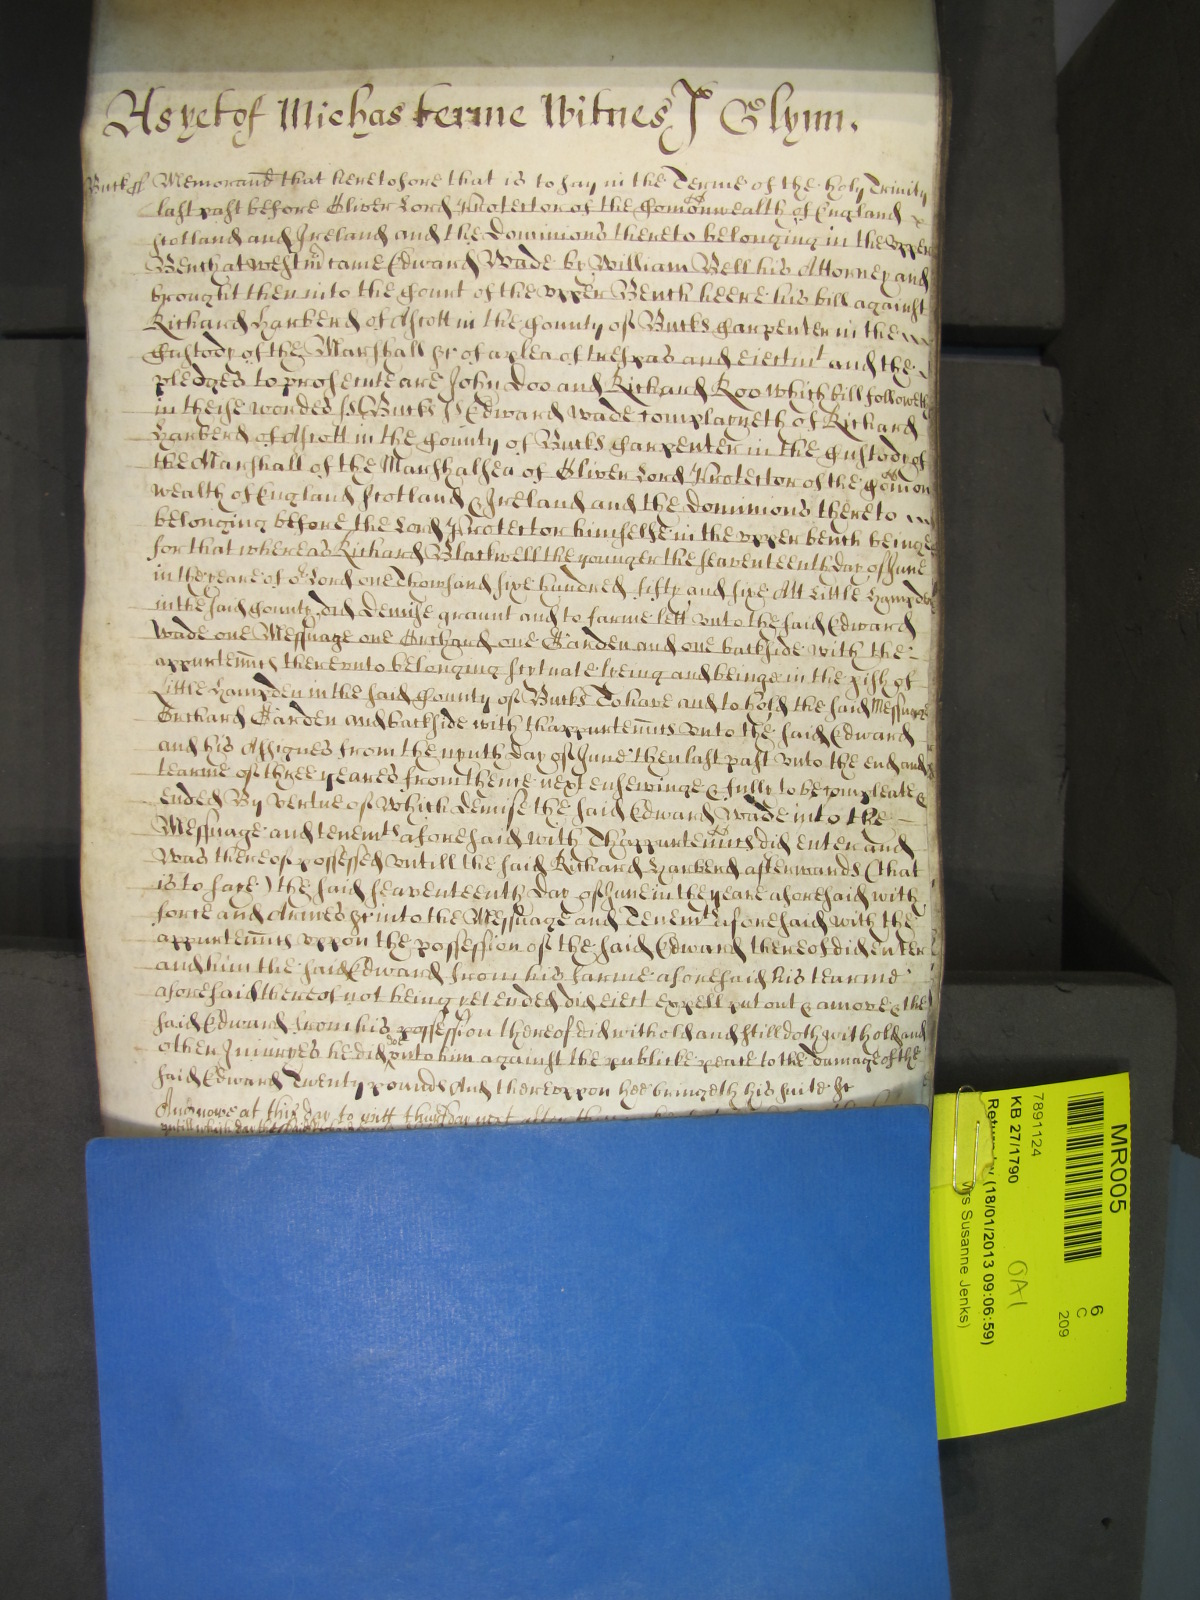 As yet of Michas terme Witnes J Glynn.
Buck ss Memorand that heretofore that is to say in the Terme of the holy Trinity
last past before Oliver Lord Protector of the Comonwealth of England
Scotland and Ireland and the Dominions thereto belonging in the upper
Bench at Westm came Edward Wade by William Bell his Attorney and
brought then into the Court of the upper Bench heere his bill against
Richard Harberd of Ascott in the County of Bucks Carpenter in the
Custody of the Marshall &c of a plea of trespas and eiectmt and the
pledges to prosecute are John Doo and Richard Roo which bill followeth
in theise wordes ss Bucks ss Edward Wade complayneth of Richard
Harberd of Ascott in the County of Bucks Carpenter in the Custody of
the Marshall of the Marshalsea of Oliver Lord Protector of the Comon
wealth of England Scotland & Ireland and the Dominions thereto
belonging before the Lord Protector himselfe in the upper bench beinge
for that whereas Richard Blackwell the younger the seaventeenth day of June
in the yeare of or Lord one Thowsand sixe hundred fifty and sixe Att Little Hampden
in the said County did demise graunt and to farme lett unto the said Edward
Wade one Messuage one Orchard one Garden and one backside with the
appurtenncs thereunto belonging scytuate lyeing and beinge in the pish of
Little Hampden in the said County of Bucks To have and to hold the said Messuage
Orchard Garden and backside with thappurtenncs unto the said Edward
and his Assignes from the nynth day of June then last past unto the end and
tearme of three yeares from thence next ensewinge & fully to be compleate &
ended By vertue of which demise the said Edward Wade into the
Messuage and tenemts aforesaid with Thappurtenncs did enter and
was thereof possessed untill the said Richard Harberd afterwards (that
is to saye) the said seaventeenth day of June in the yeare aforesaid with
force and Armes &c into the Messuage and Tenemts aforesaid with the
appurtenncs uppon the possession of the said Edward thereof did enter
and him the said Edward from his farme aforesaid his tearme
aforesaid thereof not being yet ended did eiect expell put out & amove & the
said Edward from his possession thereof did withold and still doth withold and
other Iniuryes he did unto him against the publicke peace to the damage of the
said Edward Twenty pounds And thereuppon hee bringeth his suite &c
And nowe at this day to witt
MR005
7891124
KB 27/1790
(18/01/2013 09:06:59)
Susanne Jenks)
6
C
209